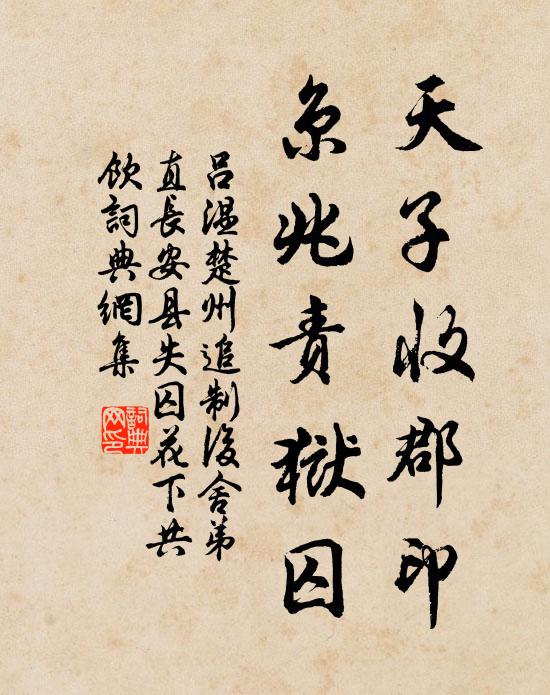 天子收郡印
京兆責獄囚
吕温楚州追制後舍弟
直長安县失囚花下共
飲詞典網集
詞典网印